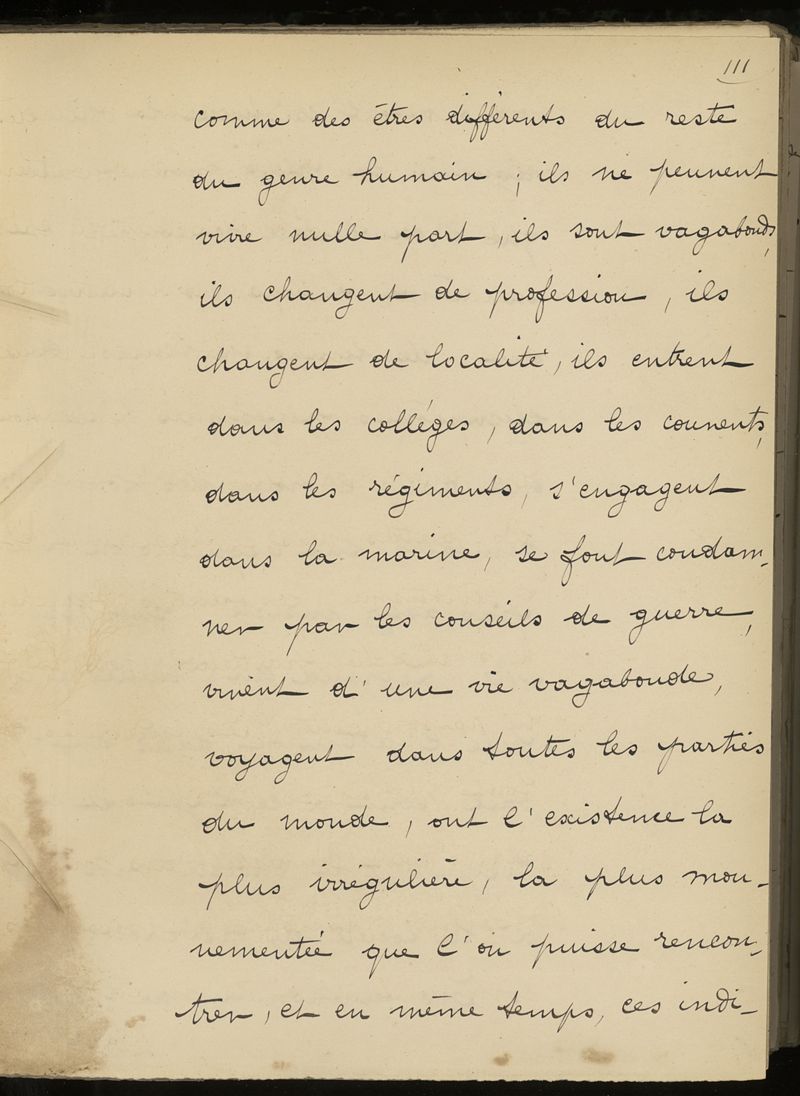 111
comme des êtres différents du reste
du genre humain ; ils ne peuvent
vivre nulle part, ils sont vagabonds,
ils changent de profession, ils
changent de localité, ils entrent
dans les colléges, dans les couvents,
dans les régiments, s'engagent
dans la marine, se font condam-
ner par les conseils de guerre,
vivent d'une vie vagabonde,
voyagent dans toutes les parties
du monde, ont l'existence la
plus irrégulière, la plus mou-
vementée que l'on puisse rencon-
trer, et en même temps, ces indi-